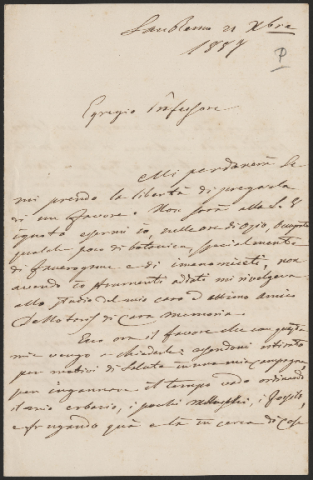 San Remo 21 Xbre
1887
P
Egregio Professore
Mi perdonerà se
mi prendo la libertà di pregarla
di un favore. Non sarà alla S. V.
ignoto essermi io, nelle ore di ozio, occupato
qualche poco di botanica, specialmente
di fanerogame e di imenomiceti, non
avendo io strumenti adatti mi rivolgeva
allo studio del mio caro ed ottimo amico
De Notaris di cara memoria.
Ecco ora il favore che con questa
mia vengo a chiederle; essendomi ritirato
per motivi di salute in una mia campagna,
per ingannare il tempo vado ordinando
il mio erbario, i pochi molluschi, i fossili,
e frugando quà e là in cerca di cose